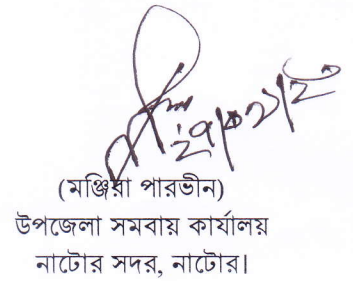 (মঞ্জিরা পারভীন)
উপজেলা সমবায় কার্যালয়
নাটোর সদর, নাটোর।